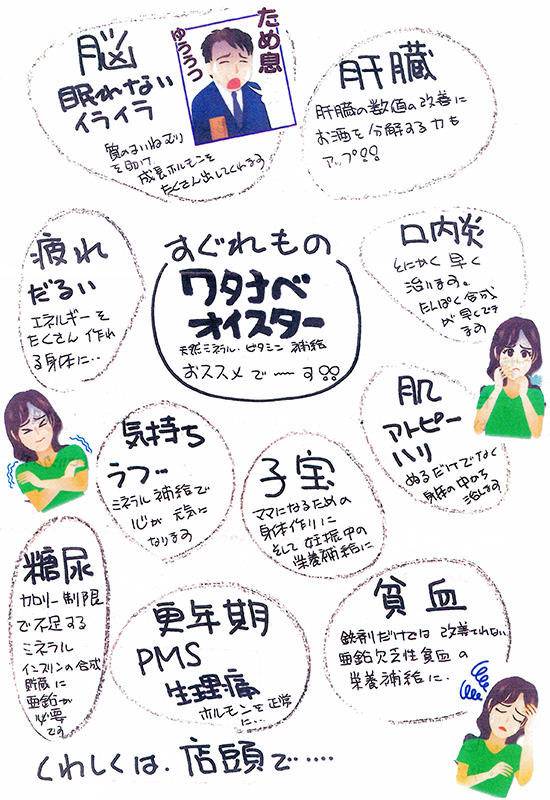 脳
眠れない
イライラ
質のよいねむり
を助け
成長ホルモンを
たくさん出してくれます
ため息
ゆううつ
肝臓
肝臓の数値の改善に
お酒を分解する力も
アップ!!
疲れ
だるい
エネルギーを
たくさん作れ
る身体に…
すぐれもの
ワタナベ
オイスター
天然ミネラル・ビタミン補給
おススメで〜す!!
口内炎
とにかく早く
治ります。
たんぱく合成
が早くでき
ます
肌
アトピー
ハリ
ぬるだけでなく
身体の中から
治します
気持ち
うつ…
ミネラル補給で
心が元気に
なります
子宝
ママになるための
身体作りに
そして妊娠中の
栄養補給に
糖尿
カロリー制限
で不足する
ミネラル
インスリンの合成
貯蔵に
亜鉛が
必要
です
更年期
PMS
生理痛
ホルモンを正常
に…
貧血
鉄剤だけでは改善されない
亜鉛欠乏性貧血の
栄養補給に.
くわしくは、店頭で……